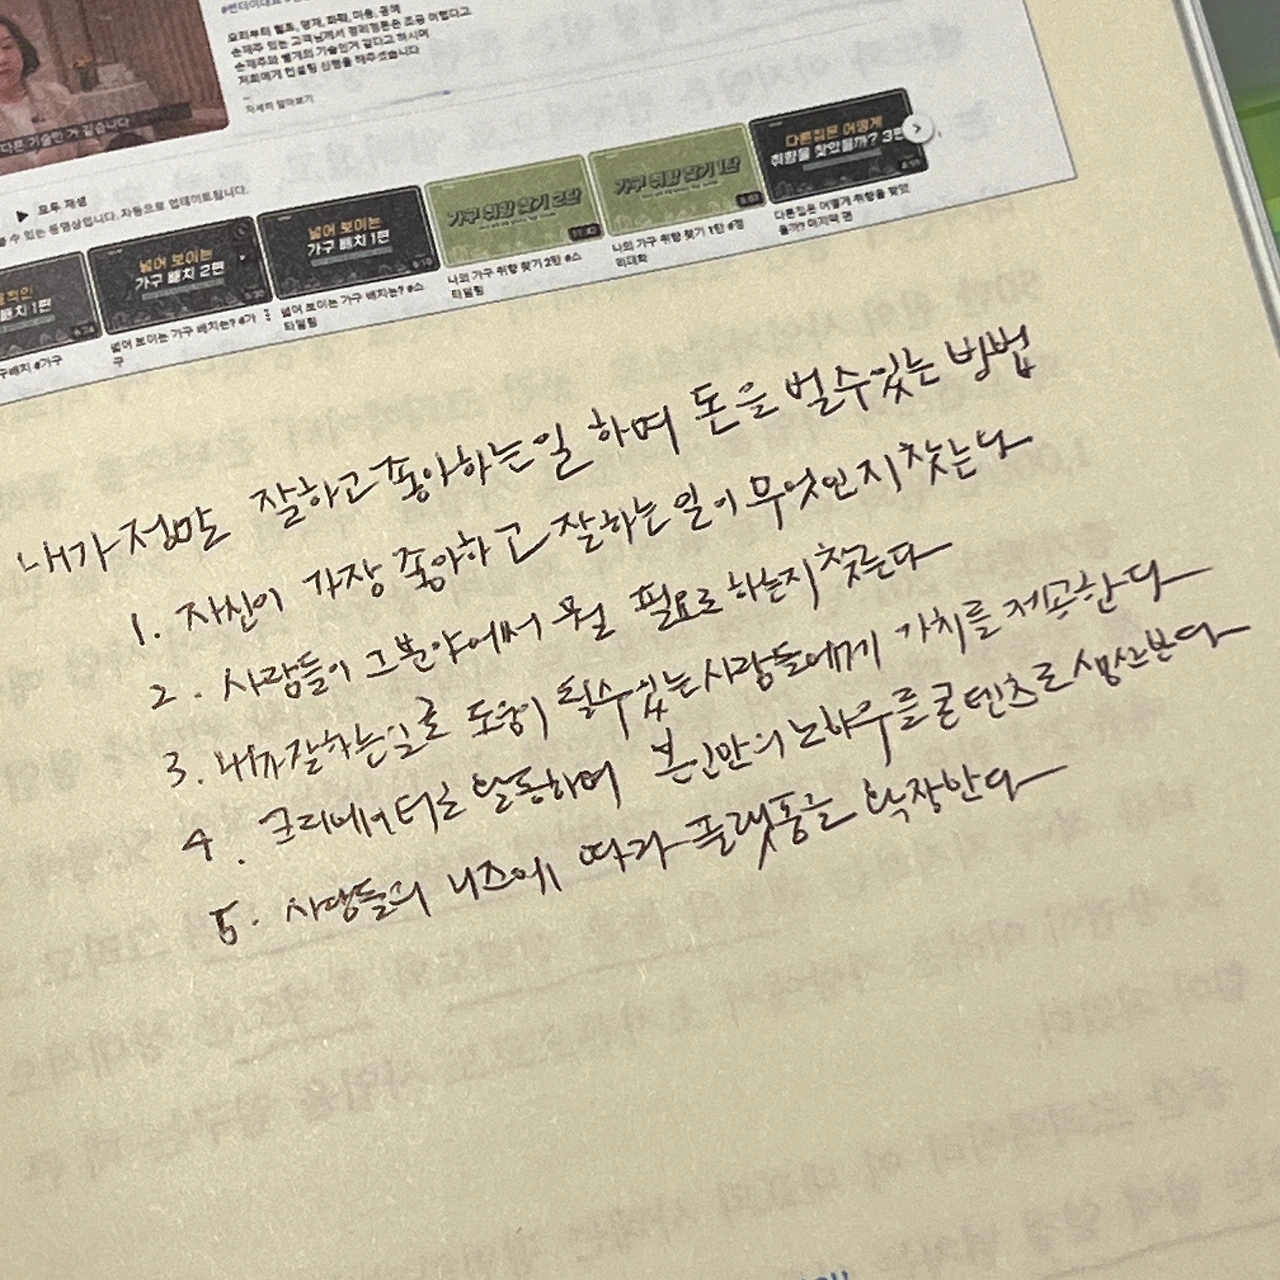 요리부터 헬스, 영재, 화훼, 미술, 공예
손재주 있는 고객님께서 정리정돈은 조금 어렵다고
손재주와 별개의 기술인거 같다고 하시며
저희에게 컨설팅 신청을 해주셨습니다
자세히 알아보기
다른 기술인 거 같습니다
▶ 모두 재생
수 있는 동영상입니다. 자동으로 업데이트됩니다.
배치 1편
넓어 보이는
가구 배치 2편
넓어 보이는
가구 배치 1편
가구 취향 찾기 2탄
가구 취향 찾기 1탄
다른집은 어떻게
취향을 찾았을까? 3편
구배치 #가구
넓어 보이는 가구 배치는? #가
구
넓어 보이는 가구 배치는? #스
타일링
나의 가구 취향 찾기 2탄 #스
타일링
나의 가구 취향 찾기 1탄 #정
리대학
다른집은 어떻게 취향을 찾았
을까? 마지막 편
내가 정말 잘하고 좋아하는일 하며 돈을 벌수있는 방법
1. 자신이 가장 좋아하고 잘하는일이 무엇인지 찾는다
2. 사람들이 그분야에서 뭘 필요로 하는지 찾는다
3. 내가 잘하는일로 도움이 될수있는 사람들에게 가치를 제공한다
4. 크리에이터로 활동하며 본인만의 노하우를 콘텐츠로 생산한다
5. 사람들의 니즈에 따라 플랫폼을 확장한다